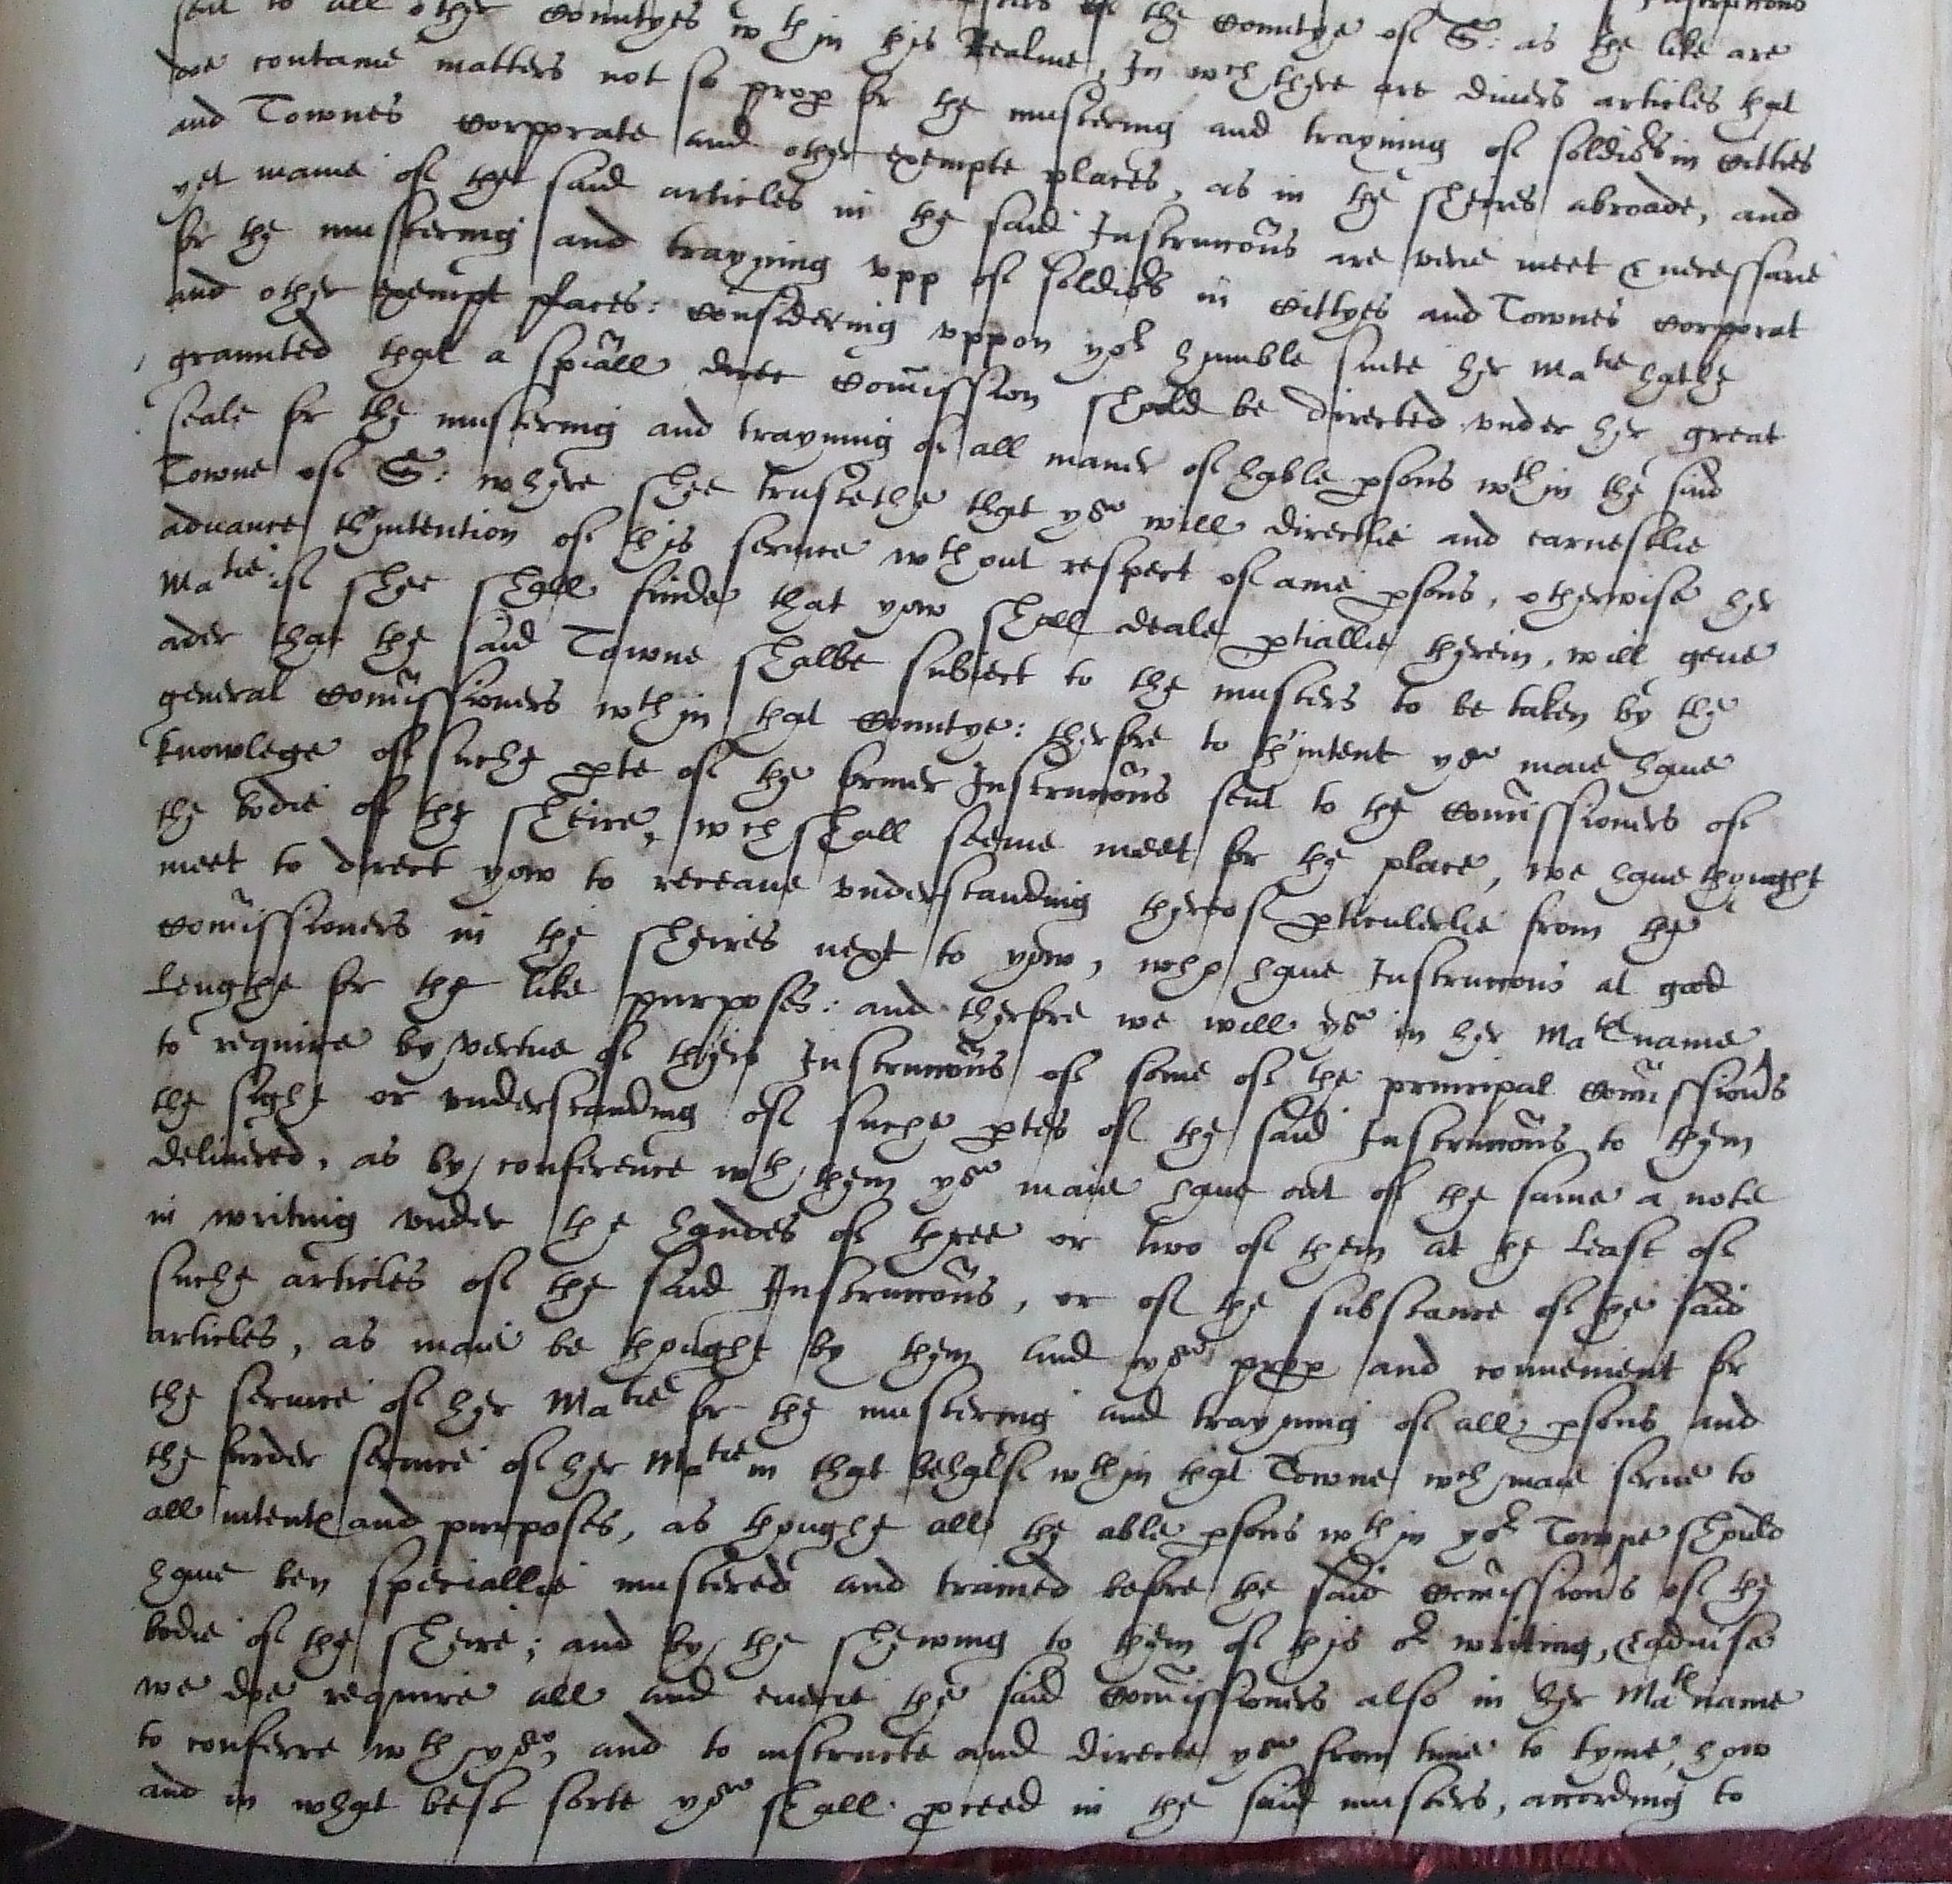 sent to all other Countyes wthin this Realme, In wch there are divers articles that
of the Countye of S: as the like are
doe containe matters not so prop for the musteringe and trayning of soldiers in Citties
and Townes Corporate and other exempte places, as in the sheires abroade, and
yet manie of the said articles in the said Instruccõns are verie meet & necessarie
for the musteringe and trayning vpp of soldiers in Cittyes and Townes Corporat
and other exempt places: Considering vppon yor humble suite her Matie hathe
graunted that a spiãll Comission shold be directed vnder her great
seale for the mustering and trayning of all maner of hable psons wthin the said
Towne of S: where shee trustethe that you will directlie and earnestlie
aduance thintention of this seruice wthout respect of anie psons, otherwise her
Matie if shee shall finde that yow shall deale ptiallie therein, will geue
order that the said Towne shalbe subiect to the musters to be taken by the
general Comissioners wthin that Countye: therfore to thintent you maie haue
knowlege of suche pte of the former Instruccõns sent to the Comissioners of
the bodie of the sheire, wch shall seeme meet for the place, we haue thought
meet to direct yow to receaue vnderstanding thereof pticulerlie from the
Comissioners in the sheires next to yow, who haue Instruccons at good
Lengthe for the like purposes: and therfore we will you in her Mats name
to require by vertue of theis Instruccõns of some of the principal Comissioners
the sight or vnderstanding of suche ptes of the said Instruccõns to them
deliuered, as by conference wth them you maie haue out of the same a note
in writing vnder the handes of three or two of them at the Least of
suche articles of the said Instruccõns, or of the substance of the said
articles, as maie be thought by them and you prop and conuenient for
the seruice of her Matie for the mustering and trayning of all psons and
the furder seruice of her Matie in that behalfe wthin that Towne wch maie serue to
all intents and purposes, as thoughe all the able psons wthin yor Towne should
haue ben speciallie mustered and trained before the said Comissioners of the
bodie of the sheire; and by the shewing to them of this or writing, & aduise
we doe require all and euerie the said Comissioners also in her Mats name
to conferre wth you, and to instructe and directe you from time to tyme, how
and in what best sorte you shall pceed in the said musters, according to